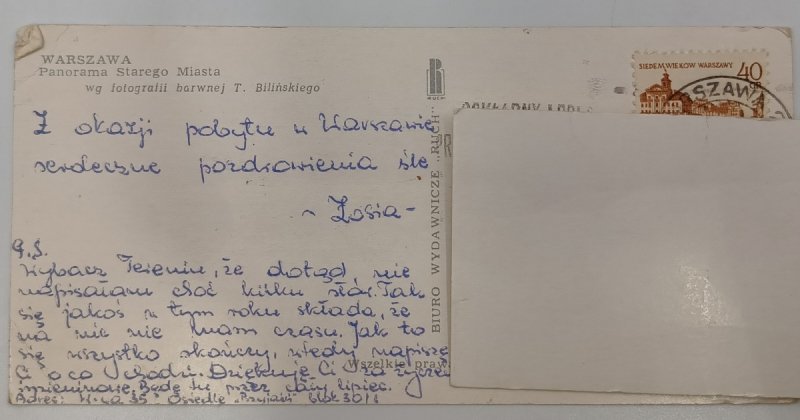 WARSZAWA
Panorama Starego Miasta
wg fotografii barwnej T. Bilińskiego
RUCH
BIURO WYDAWNICZE „RUCH"
SIEDEM WIEKÓW WARSZAWY
40
Z okazji pobytu w Warszawie
serdeczne pozdrowienia śle
~ Zosia -
P.S.
Wybacz Tereniu, że dotąd nie
napisałam choć kilku słów. Tak
się jakoś w tym roku składa, że
na nic nie mam czasu. Jak to
się wszystko skończy, wtedy napiszę
Ci o co chodzi. Dziękuję Ci za
imieninowe. Będę tu przez cały lipiec.
Adres: W-wa 35 Osiedle "Przyjaźń" blok
Wszelkie